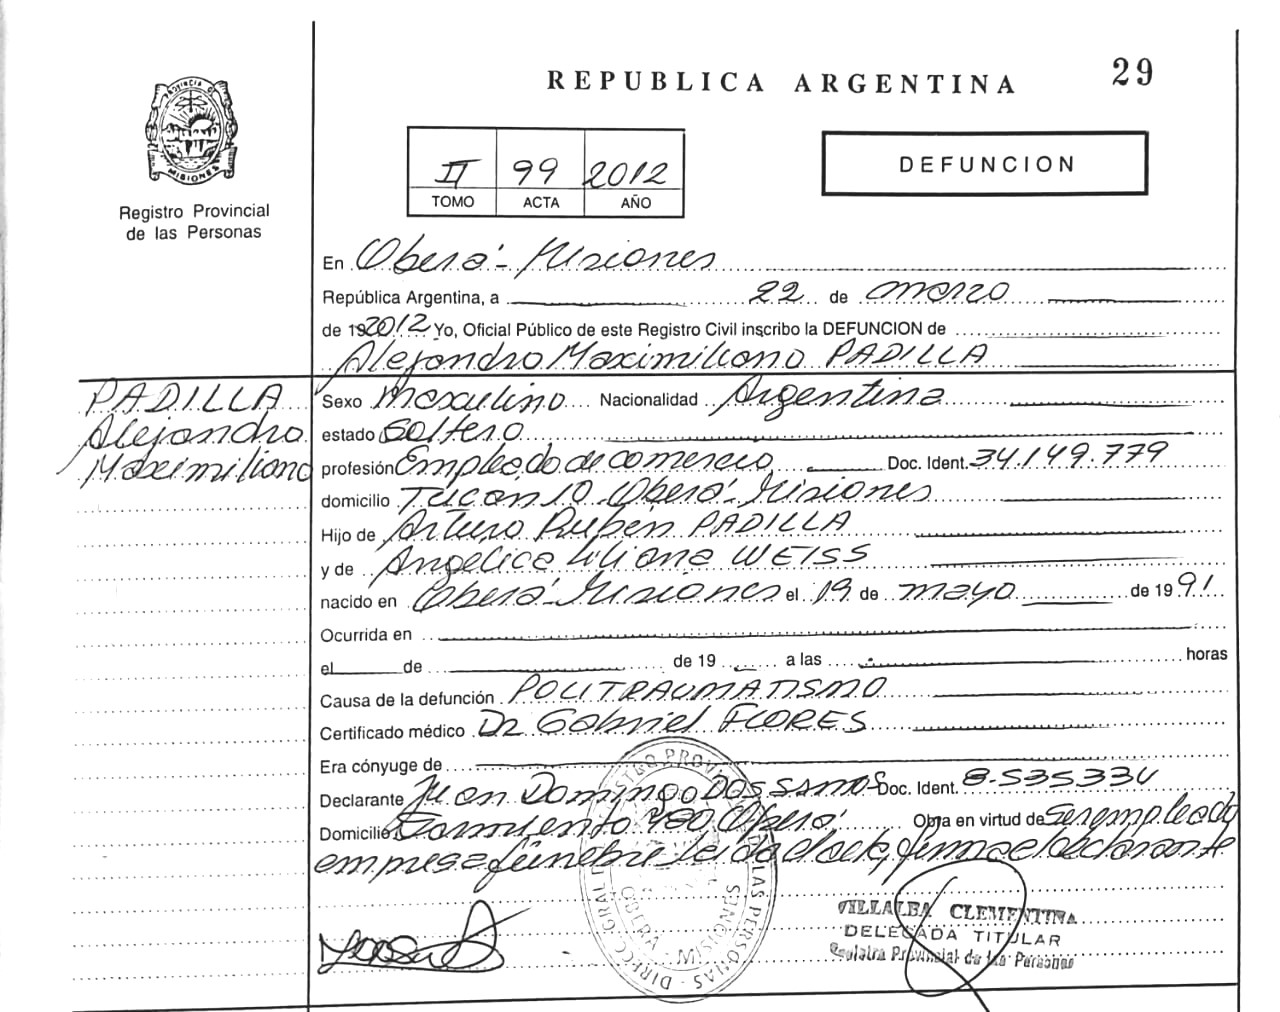 REPUBLICA ARGENTINA
29
PROVINCIA D
MISIONES
Registro Provincial
de las Personas
II 99 2012
TOMO ACTA AÑO
DEFUNCION
En Oberá - Misiones
República Argentina, a 22 de marzo
de 19 2012 Yo, Oficial Público de este Registro Civil inscribo la DEFUNCION de
Alejandro Maximiliano PADILLA
PADILLA
Alejandro
Maximiliano
Sexo Masculino Nacionalidad Argentina
estado Soltero
profesión Empleado de comercio Doc. Ident. 34.149.779
domicilio Tucan 10 Oberá - Misiones
Hijo de Arturo Ruben PADILLA
y de Angelica Liliana WEISS
nacido en Oberá - Misiones el 19 de mayo de 1991
Ocurrida en
el de de 19 a las horas
Causa de la defunción POLITRAUMATISMO
Certificado médico Dr Gabriel FLORES
Era cónyuge de
Declarante Juan Domingo DOS SANTOS Doc. Ident. 8.535334
Domicilio Sarmiento 480 Oberá Obra en virtud de Ser empleado
empresa fúnebre leída el acta, firma el declarante
VILLALBA CLEMENTINA
DELEGADA TITULAR
Registro Provincial de las Personas
LAS PERSONAS
MISIONES